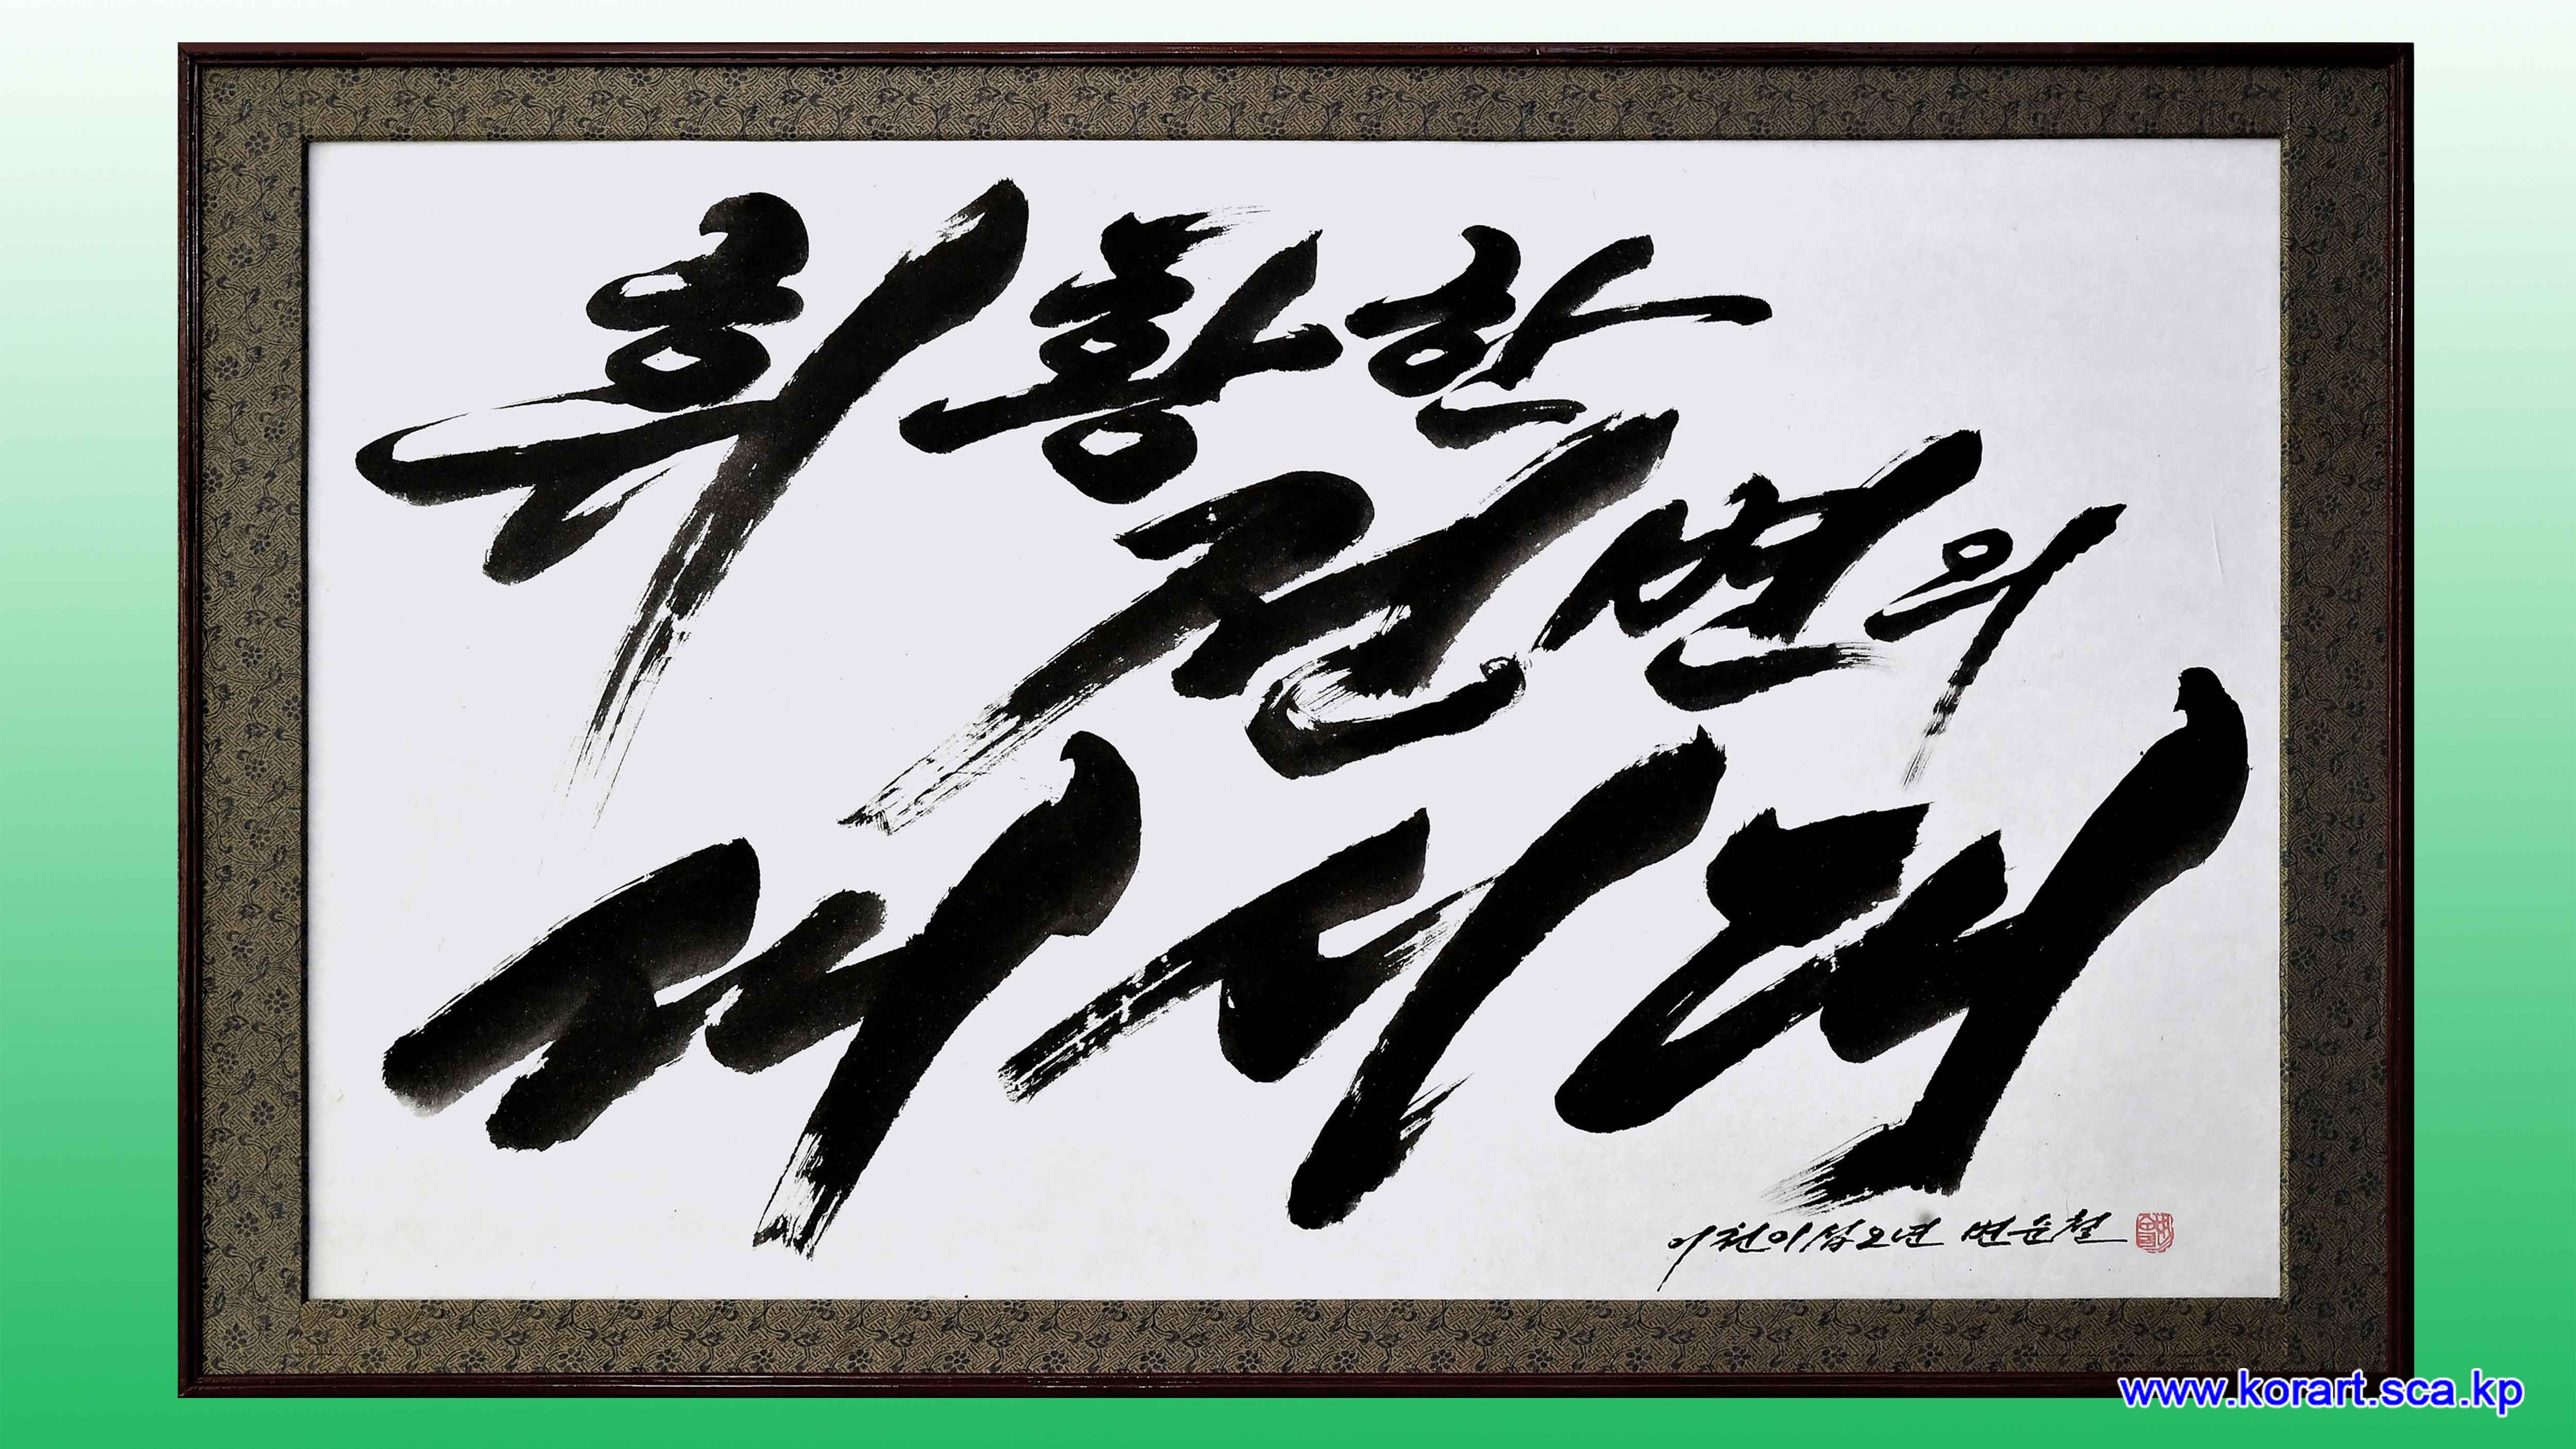 휘황한
전변의
새시대
이천이십오년 변순철
www.korart.sca.kp